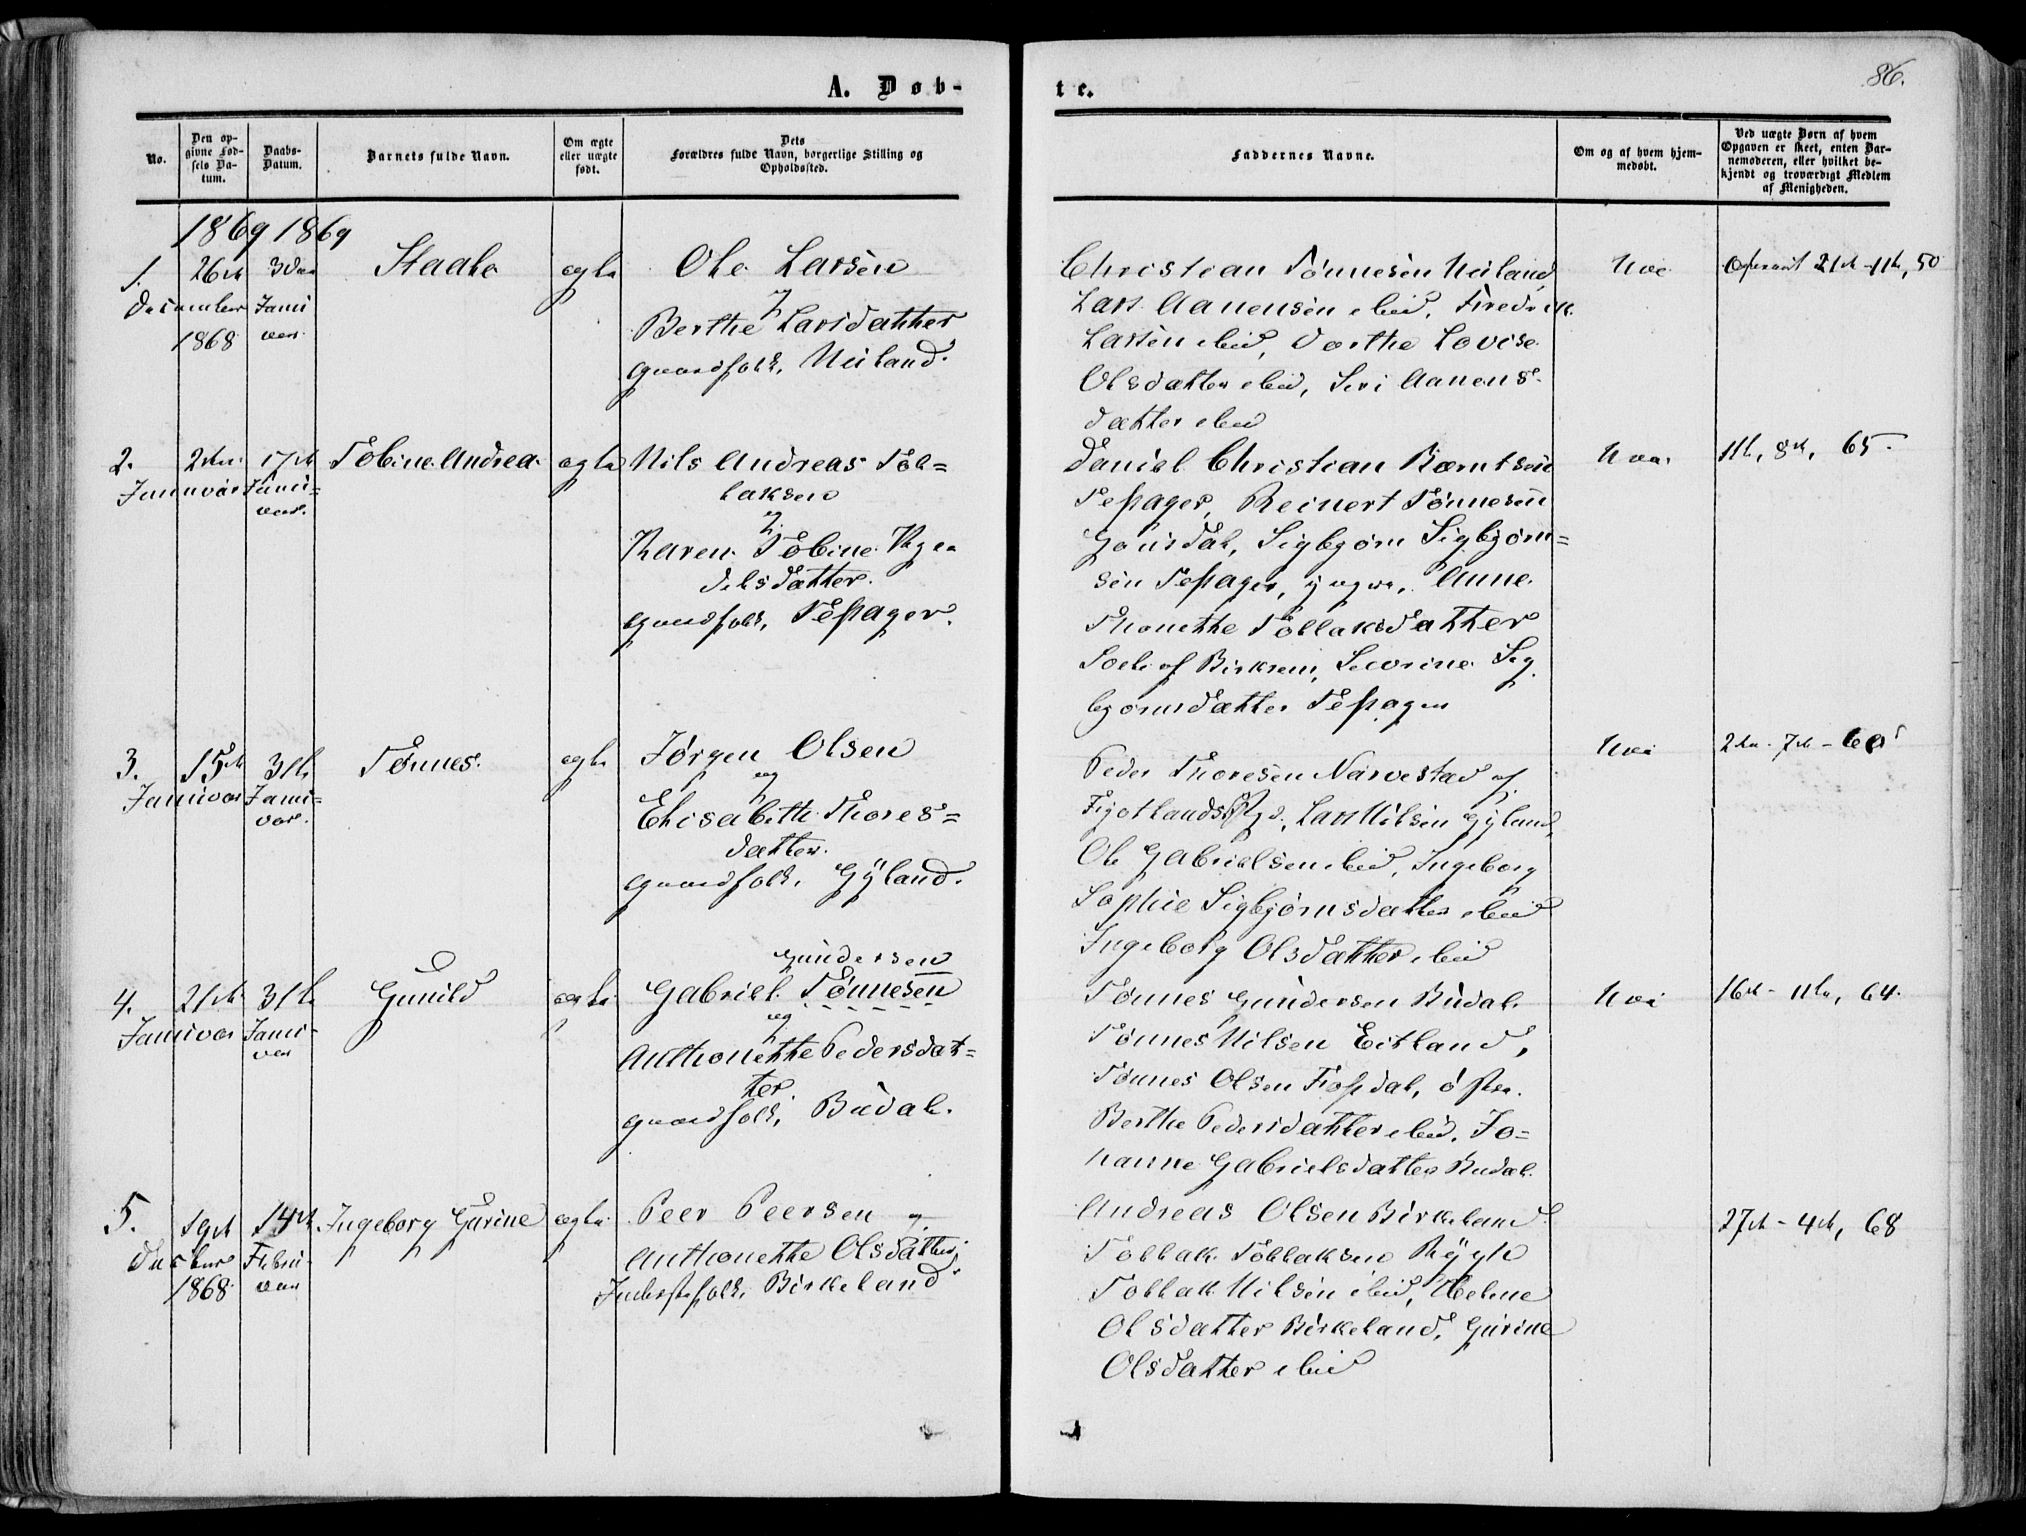 86.
A. Døb-
te.
No.
Den op-
givne Fød-
sels Da-
tum.
Daabs-
Datum.
Barnets fulde Navn.
Om ægte
eller uægte
født.
Dets
Forældres fulde Navn, borgerlige Stilling og
Opholdssted.
Faddernes Navne.
Om og af hvem hjem-
medøbt.
Ved uægte Børn af hvem
Opgaven er skeet, enten Bar-
nemoderen, eller hvilket be-
kjendt og troværdigt Medlem
af Menigheden.
1869 1869
1.
26de
December
1868
3die
Janu
var
Staale
ægte
Ole Larsen
og
Berthe Larsdatter
gaardfolk, Neiland.
Christian Tønnesen Neiland
Lars Aanensen ibid, Fredrik
Larsen ibid, Dorthe Lovise
Olsdatter ibid, Siri Aanens-
datter ibid
Nei
21de - 11te, 50
2.
2den
Januvar
17de
Janu=
var.
Tobine Andrea.
ægte
Nils Andreas Tol=
laksen
og
Karen Tobine
delsdatter.
gaardfolk, Tessager.
Daniel Christian Berntsen
Tessager, Reinert Tønnesen
Gausdal, Sigbjørn Sigbjørn=
sen Tessager, Anne
Thonette Tollaksdatter
af Birkrem, Severine Sig
bjørnsdatter Tessager
Nei
11te, 8de, 65.
3.
15de
Januvar
31te
Janu=
var.
Tønnes.
ægte
Jørgen Olsen
og
Elisabeth Thores=
datter.
gaardfolk, Gÿland.
Peder Thoresen Narvestad af
Lars Nilsen Gÿland,
Ole Gabrielsen ibid, Ingeborg
Sophie Sigbjørnsdatter ibid
Ingeborg Olsdatter ibid
Nei
2den - 7de - 60
4.
21de
Januvar
31te
Janu-
var
Gunild
ægte
Gundersen
Gabriel Tønnesen
og
Anthonette Pedersdat=
ter
gaardfolk, Budal.
Tønnes Gundersen Budal
Tønnes Nilsen Eitland,
Tønnes Olsen Fossdal, østre.
Berthe Pedersdatter ibid, Jo=
hanne Gabrielsdatter Budal.
Nei
16de - 11te, 64.
5.
19de
December
1868
14de
Febru-
var
Ingeborg Gurine
ægte
Peer Peersen og
Anthonette Olsdatter
Inderstfolk, Birkeland
Andreas Olsen Birkeland
Tollak Tollaksen
Tollak Nilsen ibid, Helene
Olsdatter Birkeland, Gurine
Olsdatter ibid
27de - 4de, 68